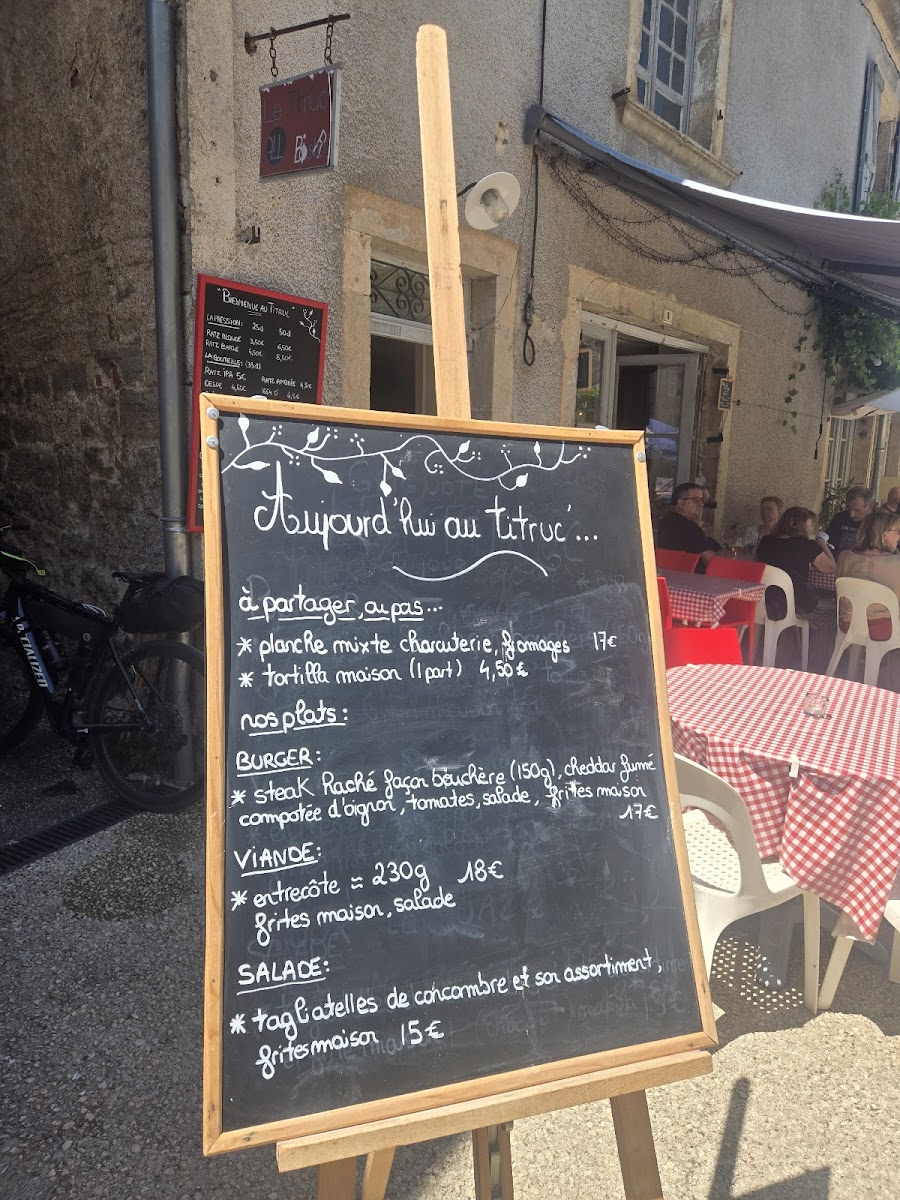 Le Titruc
BIENVENUE AU TITRUC
LA PRESSION: 25cl 50cl
RATZ BLONDE 3,50€ 6,50€
RATZ BLANCHE 4,50€ 8,50€
LA BOUTEILLE: (33cl)
RATZ IPA 5€ RATZ AMBRÉE 4,5€
DESPE 4,50€
Aujourd'hui au Titruc'...
à partager, ou pas...
* planche mixte charcuterie, fromages 17€
* tortilla maison (1 part) 4,50€
nos plats:
BURGER:
* steak haché façon bouchère (150g), cheddar fumé
compotée d'oignon, tomates, salade, frites maison
17€
VIANDE:
* entrecôte ≈ 230g 18€
frites maison, salade
SALADE:
* tagliatelles de concombre et son assortiment,
frites maison 15€